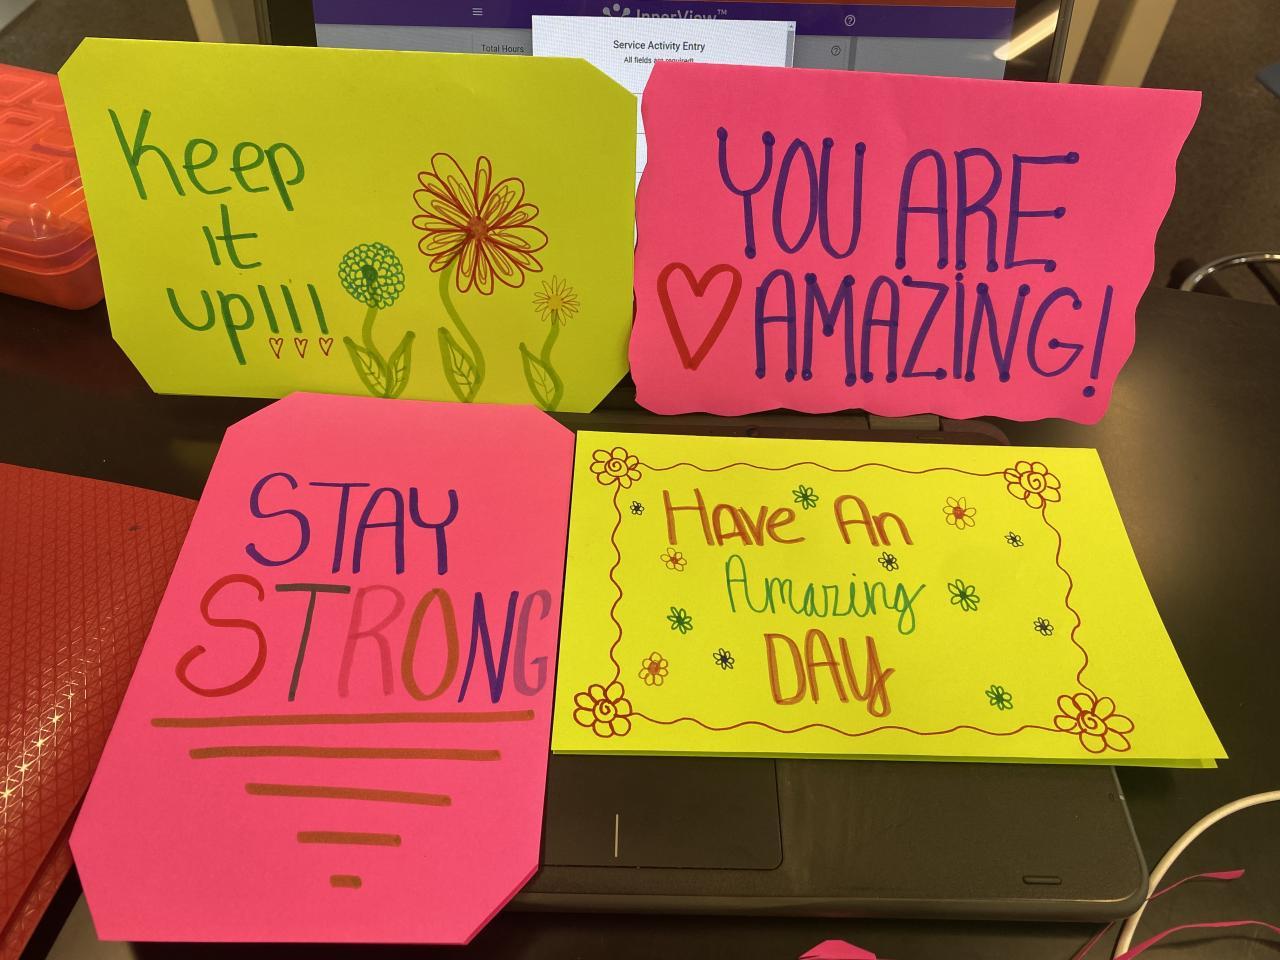 InnerView™
Total Hours
Service Activity Entry
All fields are required!
Keep
it
up!!!
YOU ARE
AMAZING!
STAY
STRONG
Have An
Amazing
DAY